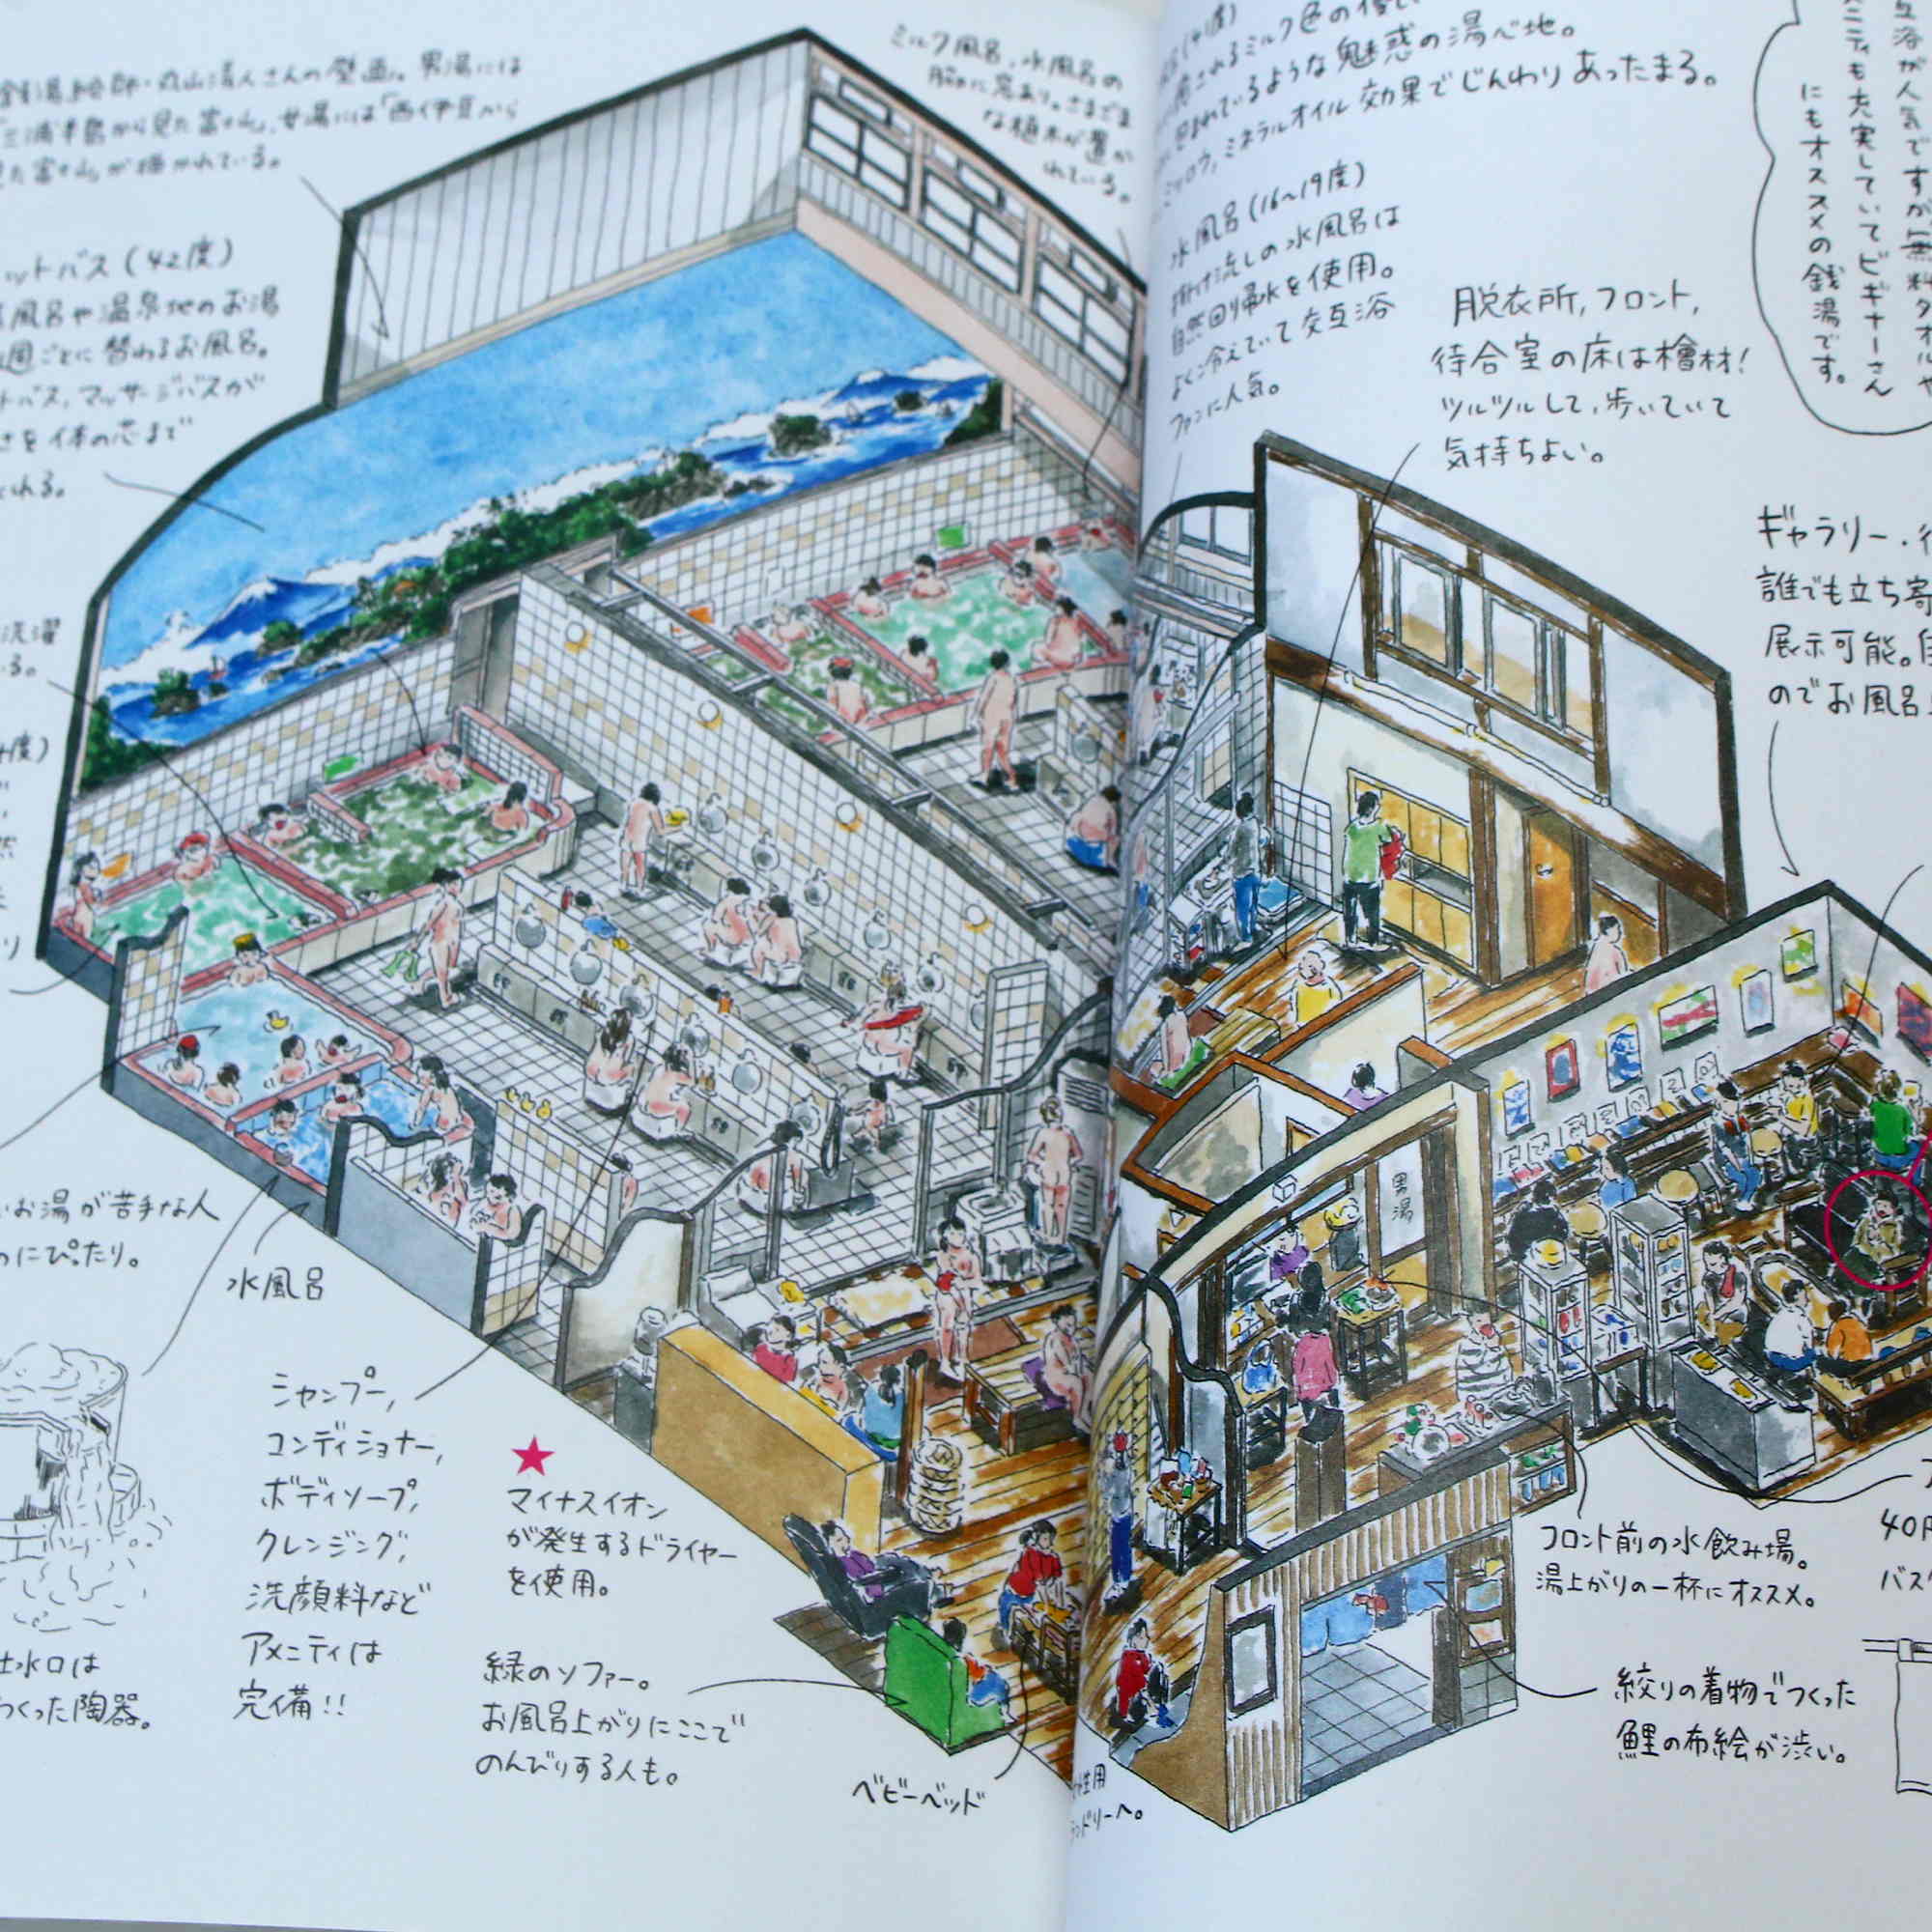 銭湯絵師・丸山清人さんの壁画。男湯には
「三浦半島から見た富士山」、女湯には「西伊豆から
見た富士山」が描かれている。
ミルク風呂、水風呂の
脇に窓あり。さまざま
な植木が置か
れている。
ットバス(42度)
風呂や温泉地のお湯
週ごとに替わるお風呂。
トバス、マッサージバスが
さを体の芯まで
くれる。
洗濯
いる。
度)
お湯が苦手な人
のにぴったり。
水風呂
シャンプー,
コンディショナー,
ボディソープ,
クレンジング,
洗顔料など
アメニティは
完備!!
吐水口は
つくった陶器。
★
マイナスイオン
が発生するドライヤー
を使用。
緑のソファー。
お風呂上がりにここで
のんびりする人も。
ベビーベッド
(41度)
されるミルク色の優しい
包まれているような魅惑の湯べ地。
ミツロウ, ミネラルオイル効果でじんわりあったまる。
水風呂(16~19度)
掛け流しの水風呂は
自然回帰水を使用。
よく冷えていて交互浴
ファンに人気。
脱衣所, フロント,
待合室の床は檜材!
ツルツルして、歩いていて
気持ちよい。
互浴が人気ですが無料タオルや
ニティも充実していてビギナーさん
にもオススメの銭湯です。
ギャラリー・
誰でも立ち寄
展示可能。
のでお風呂
男湯
フロント前の水飲み場。
湯上がりの一杯にオススメ。
40円
バス
絞りの着物でつくった
鯉の布絵が渋い。
性用
ンドリーへ。